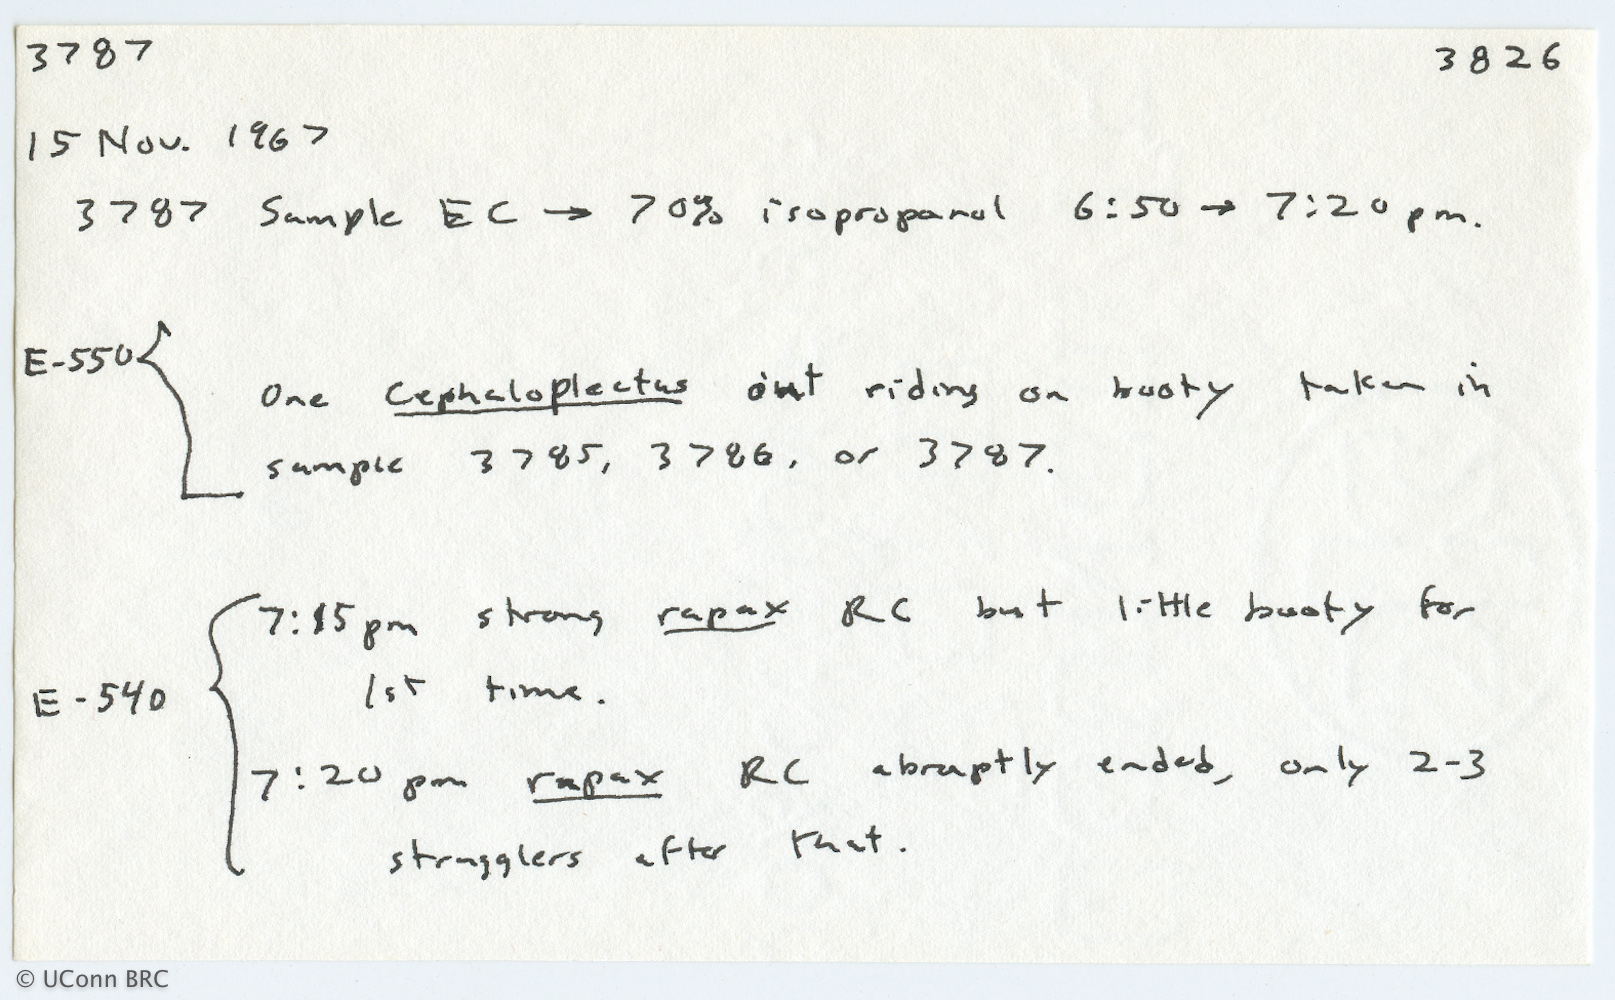 3787 3826
15 Nov. 1967
3787 Sample EC → 70% isopropanol 6:50 → 7:20 pm.
E-550
One Cephaloplectus out riding on booty taken in
sample 3785, 3786, or 3787.
7:15 pm strong rapax RC but little booty for
1st time.
E-540
7:20 pm rapax RC abruptly ended, only 2-3
stragglers after that.
© UConn BRC